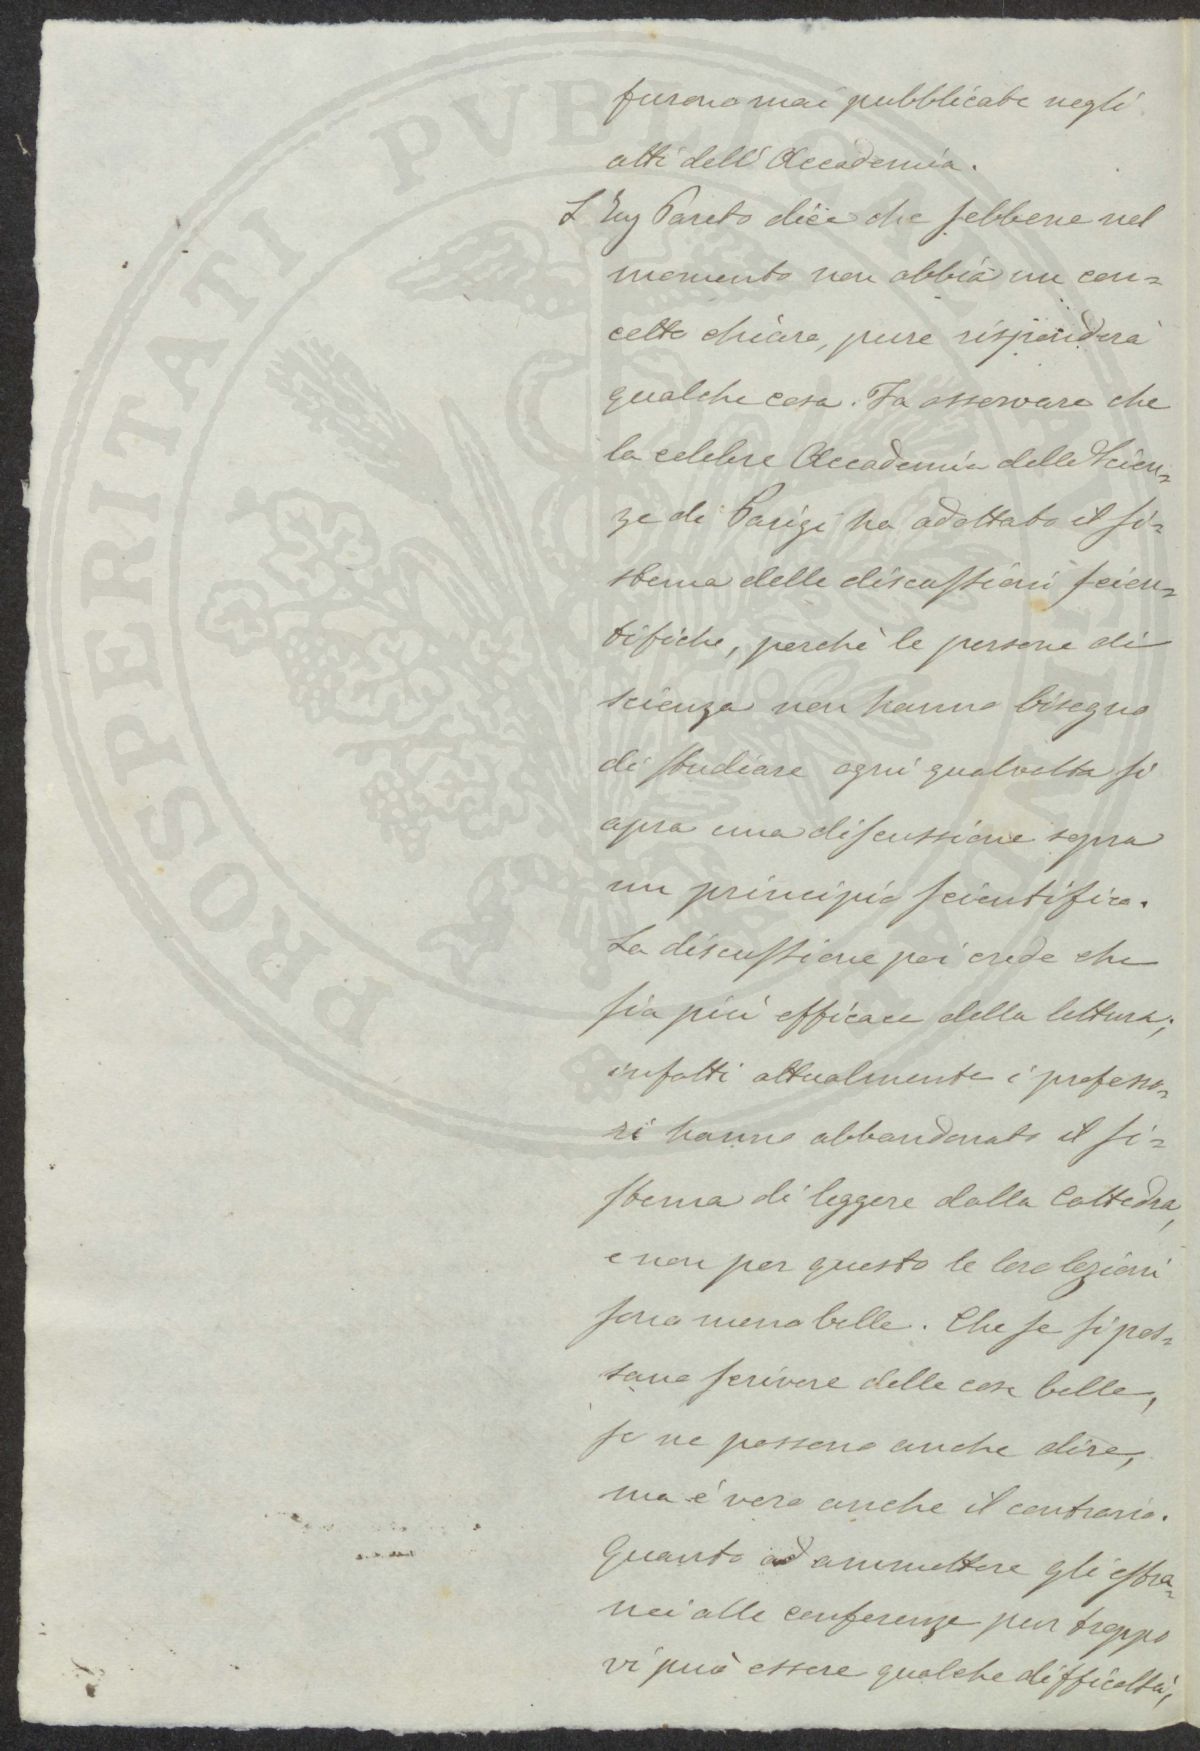 furono mai pubblicate negli
atti dell'Accademia.
L'Ing Pareto dice che sebbene nel
momento non abbia un con=
cetto chiaro, pure risponderà
qualche cosa. Fa osservare che
la celebre Accademia delle Scien=
ze di Parigi ha adottato il si=
stema delle discussioni scien=
tifiche, perchè le persone di
scienza non hanno bisogno
di studiare ogni qualvolta si
apra una discussione sopra
un principio scientifico.
La discussione poi crede che
sia più efficace della lettura;
infatti attualmente i professo=
ri hanno abbandonato il si=
stema di leggere dalla Cattedra,
e non per questo le loro lezioni
sono meno belle. Che se si pos=
sono scrivere delle cose belle,
se ne possono anche dire,
ma è vero anche il contrario.
Quanto ad ammettere gli estra=
nei alle conferenze pur troppo
vi può essere qualche difficoltà,
PROSPERITATI PVBLICAE